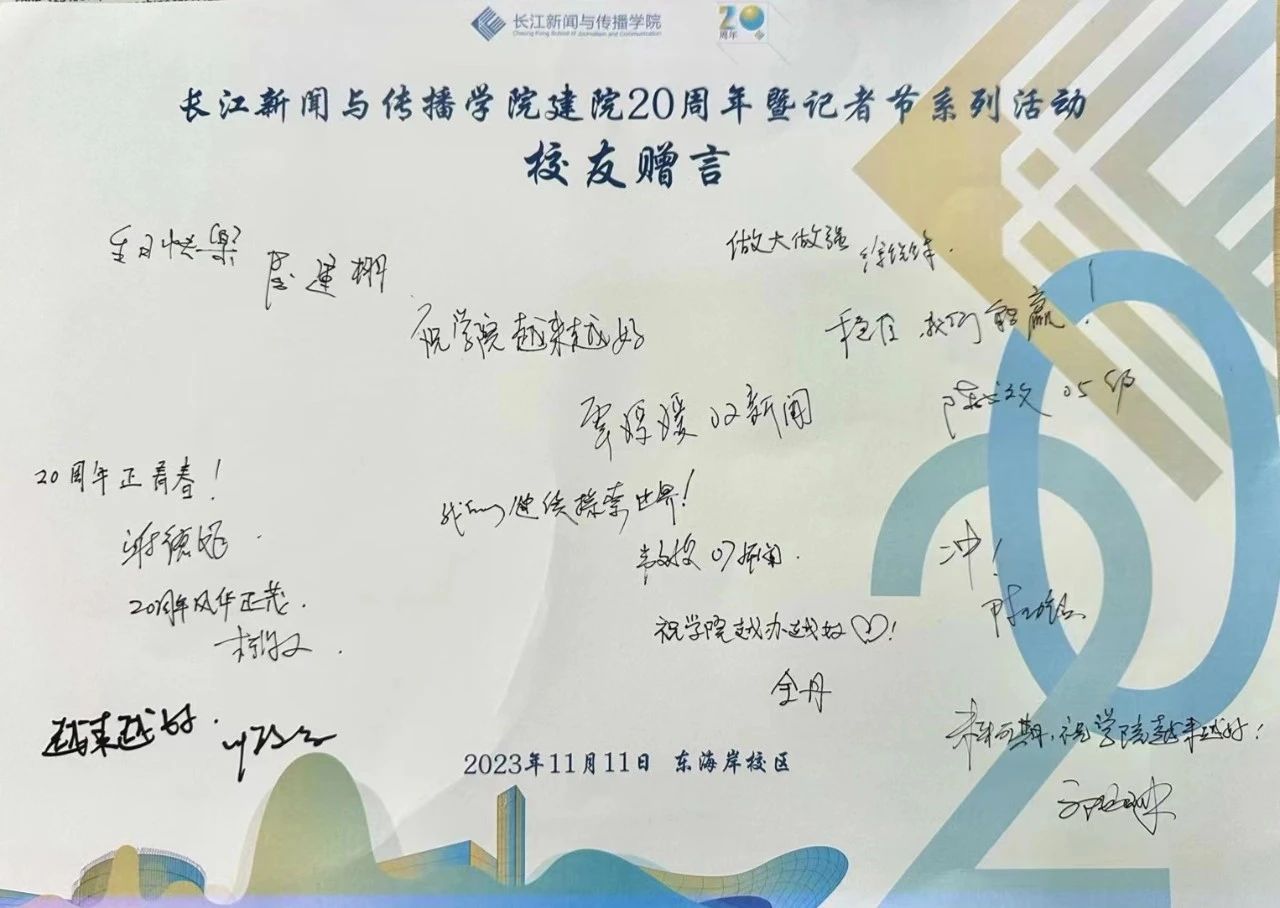 长江新闻与传播学院
Cheung Kong School of Journalism and Communication
20
周年
长江新闻与传播学院建院20周年暨记者节系列活动
校友赠言
生日快乐
建栅
做大做强
祝学院越来越好
稳住 我们能赢！
02新闻
05级
20周年正青春！
谢德
我们继续探索世界！
07新闻.
冲！
20周年风华正茂.
祝学院越办越好！
全丹
越来越好.
未来可期，祝学院越来越好！
2023年11月11日 东海岸校区
20